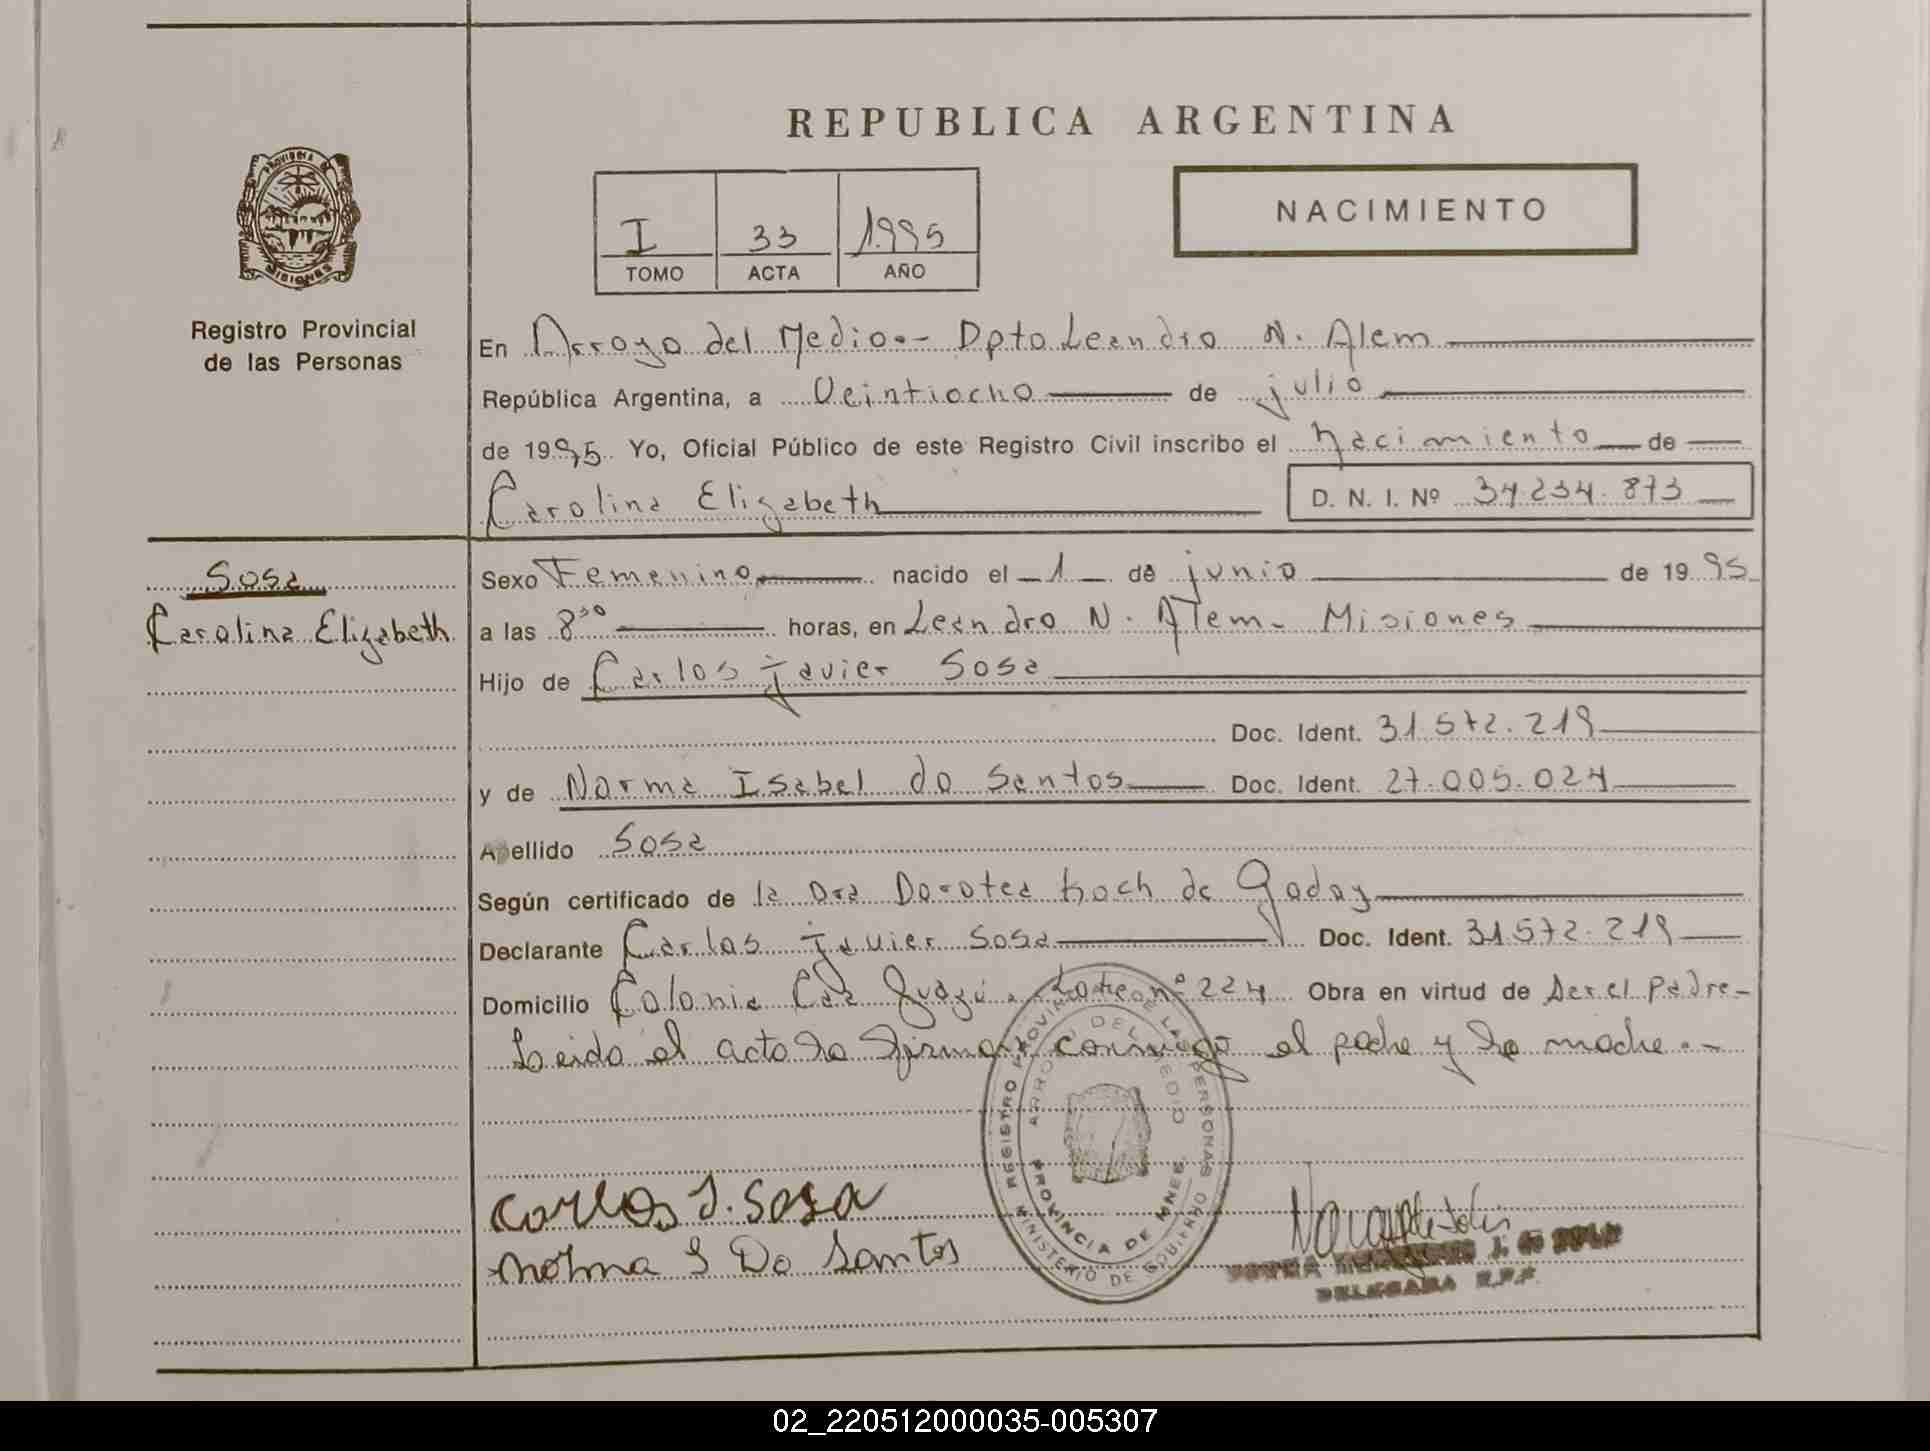 REPUBLICA ARGENTINA
NACIMIENTO
I 33 1995
TOMO ACTA AÑO
Registro Provincial
de las Personas
En Arroyo del Medio.- Dpto Leandro N. Alem
República Argentina, a Veintiocho de julio
de 1995 Yo, Oficial Público de este Registro Civil inscribo el nacimiento de
Carolina Elizabeth D. N. I. Nº 34.234.873
Sosa
Carolina Elizabeth
Sexo Femenino nacido el 1 de junio de 1995
a las 8 30 horas, en Leandro N. Alem - Misiones
Hijo de Carlos Javier Sosa
Doc. Ident. 31.572.219
y de Norma Isabel do Santos Doc. Ident. 27.005.024
Apellido Sosa
Según certificado de la Dra Dorotea Koch de Godoy
Declarante Carlos Javier Sosa Doc. Ident. 31.572.219
Domicilio Colonia Caá Guazú, Lote nº 224 Obra en virtud de ser el padre-
Leido el acta la firman conmigo el padre y la madre.-
REGISTRO PROVINCIAL DE LAS PERSONAS
ARROYO DEL MEDIO
PROVINCIA DE MNES.
MINISTERIO DE GOBIERNO
Carlos J. Sosa
Norma I Do Santos
DELEGADA R.P.P.
02_220512000035-005307